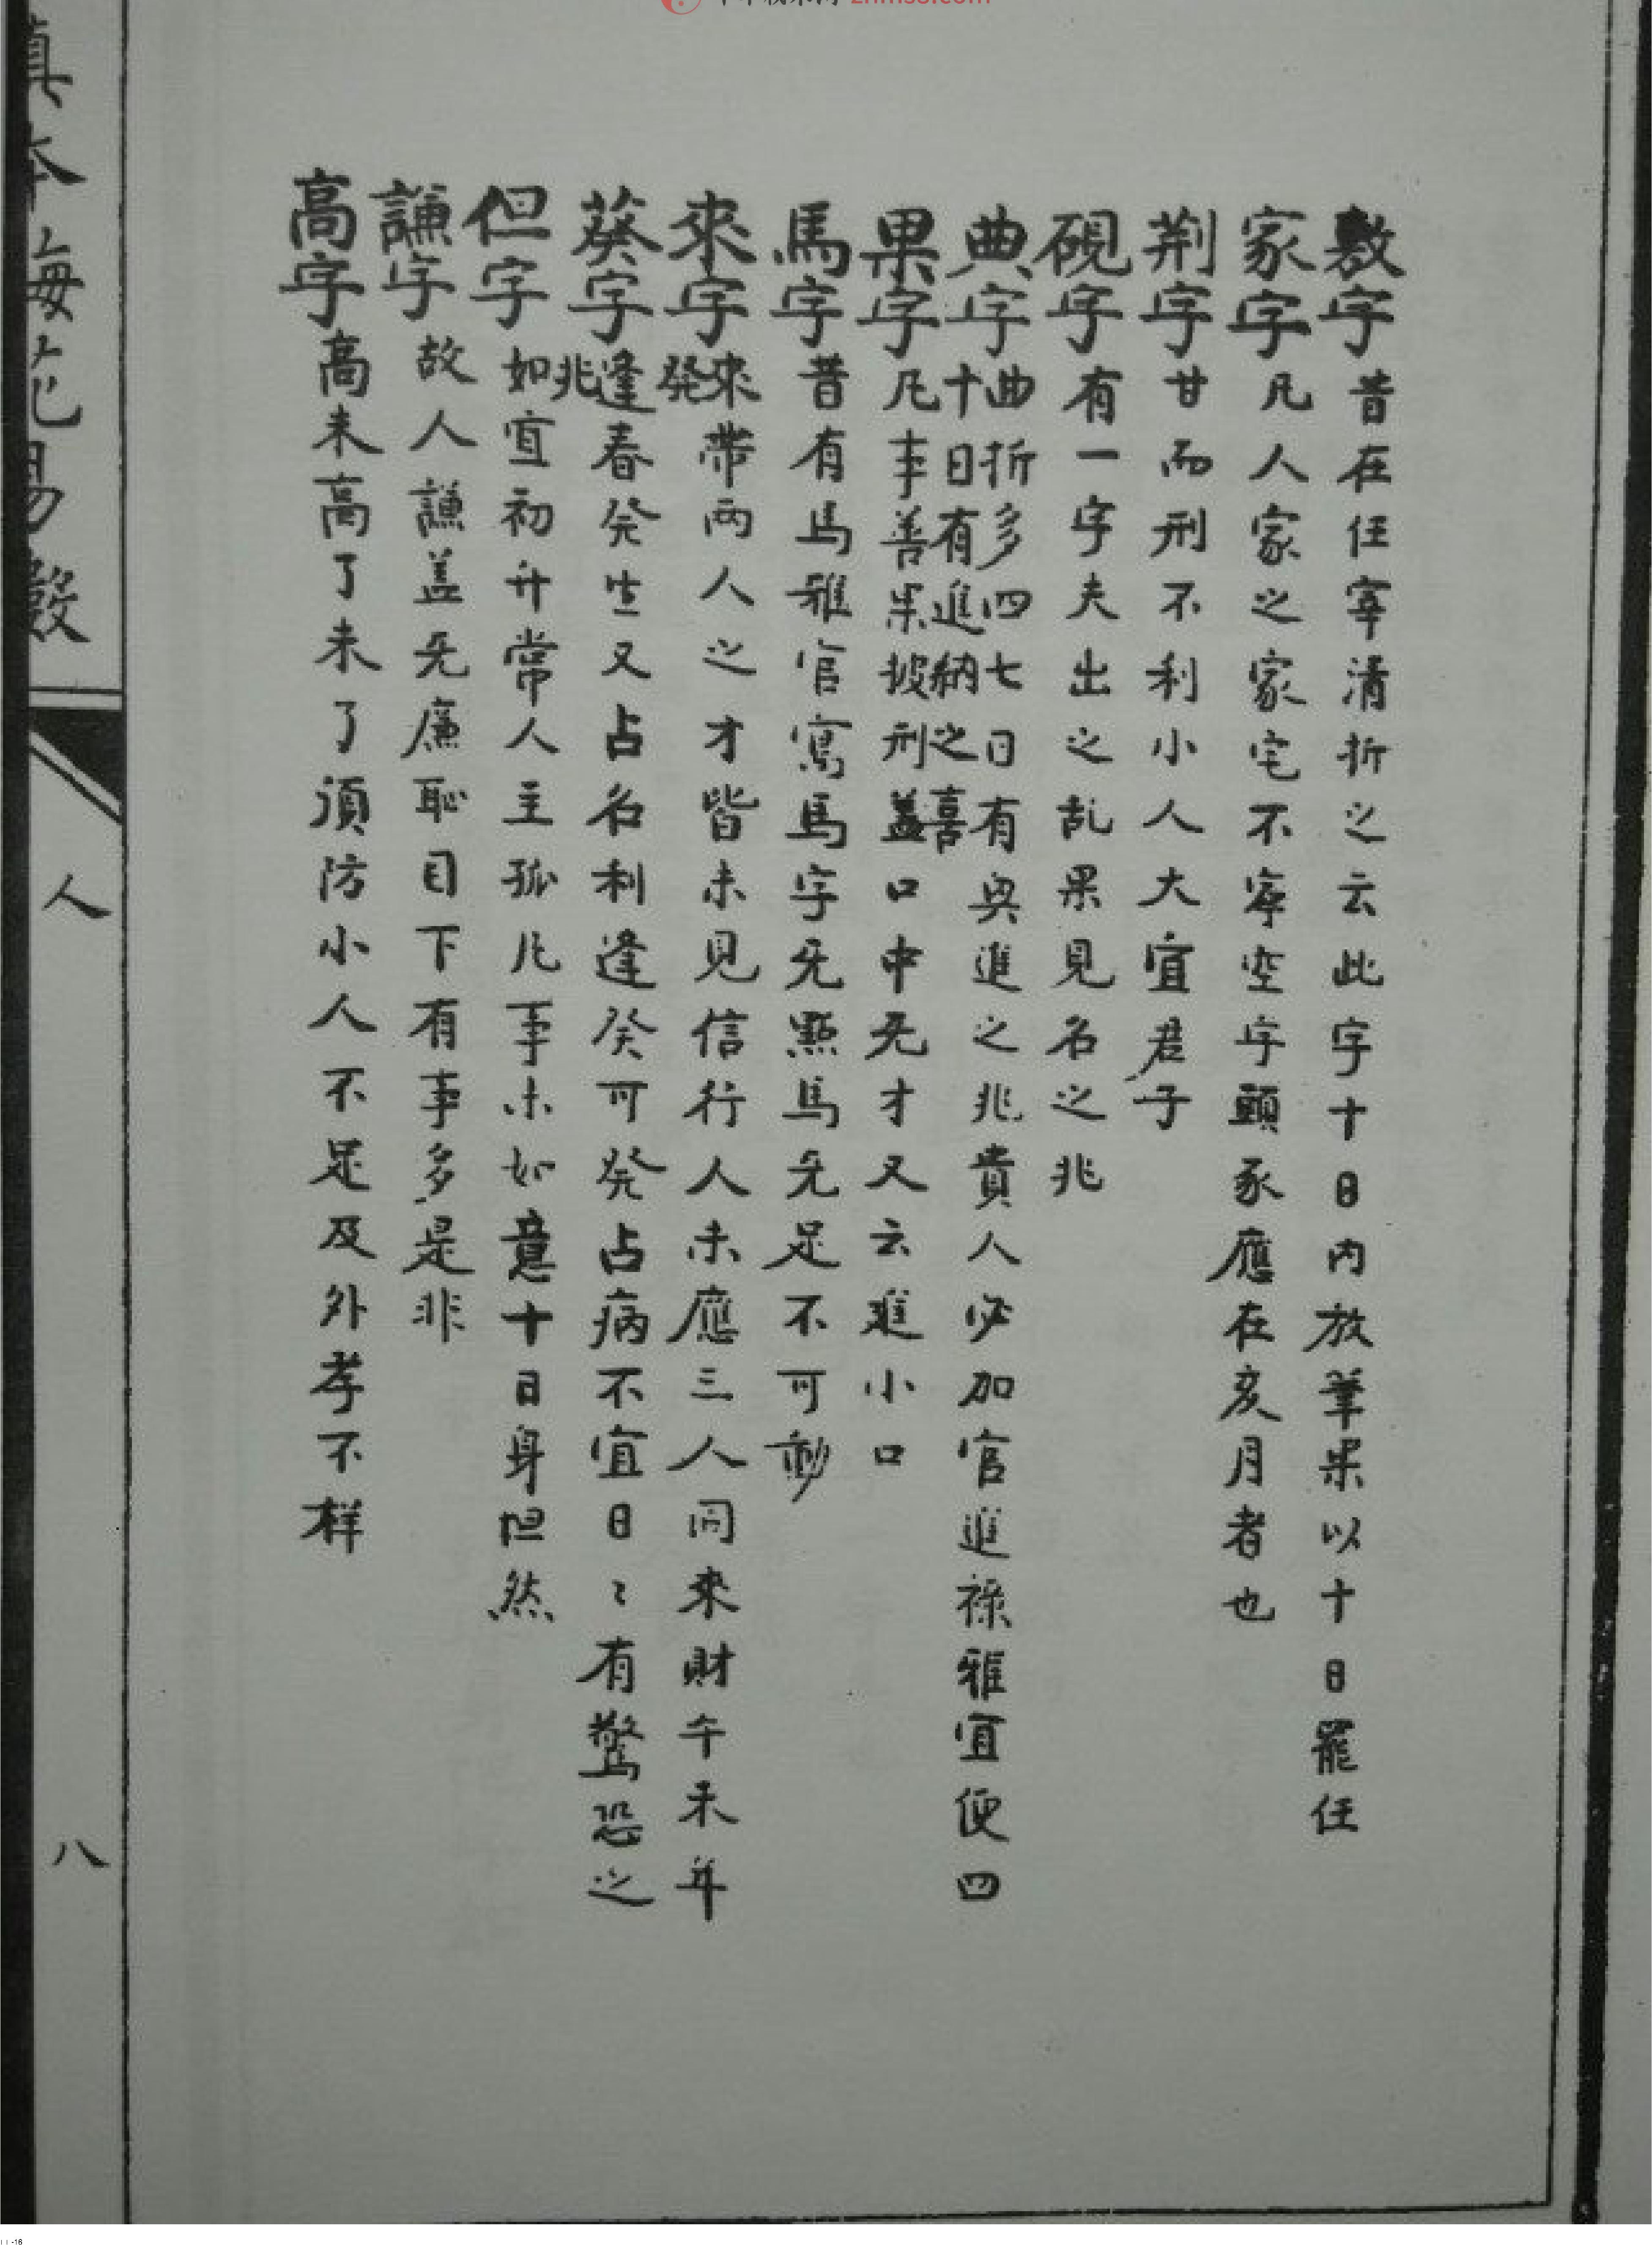 敷字昔在任宰清折之云此字十日内放筆果以十日罷任
家字凡人家之家宅不寧空字頭豕應在亥月者也
荆字甘而刑不利小人大宜君子
硯字有一字夫出之乱果見名之兆
典字曲折多四七日有與進之兆貴人必加官進祿雅宜便四
十日有進納之喜
果字凡事善果披刑蓋口中旡才又云進小口
馬字昔有馬雅官寫馬字旡點馬旡足不可動
來字來帶兩人之才皆未見信行人未應三人同來財午未年
癸
葵字逢春癸生又占名利逢癸可癸占病不宜日〻有驚恐之
兆
但字如宜初升常人主孤凡事未如意十日身但然
謙字故人謙蓋旡廉恥目下有事多是非
高字高未高了未了須防小人不足及外孝不样
真本梅花易數
人
八